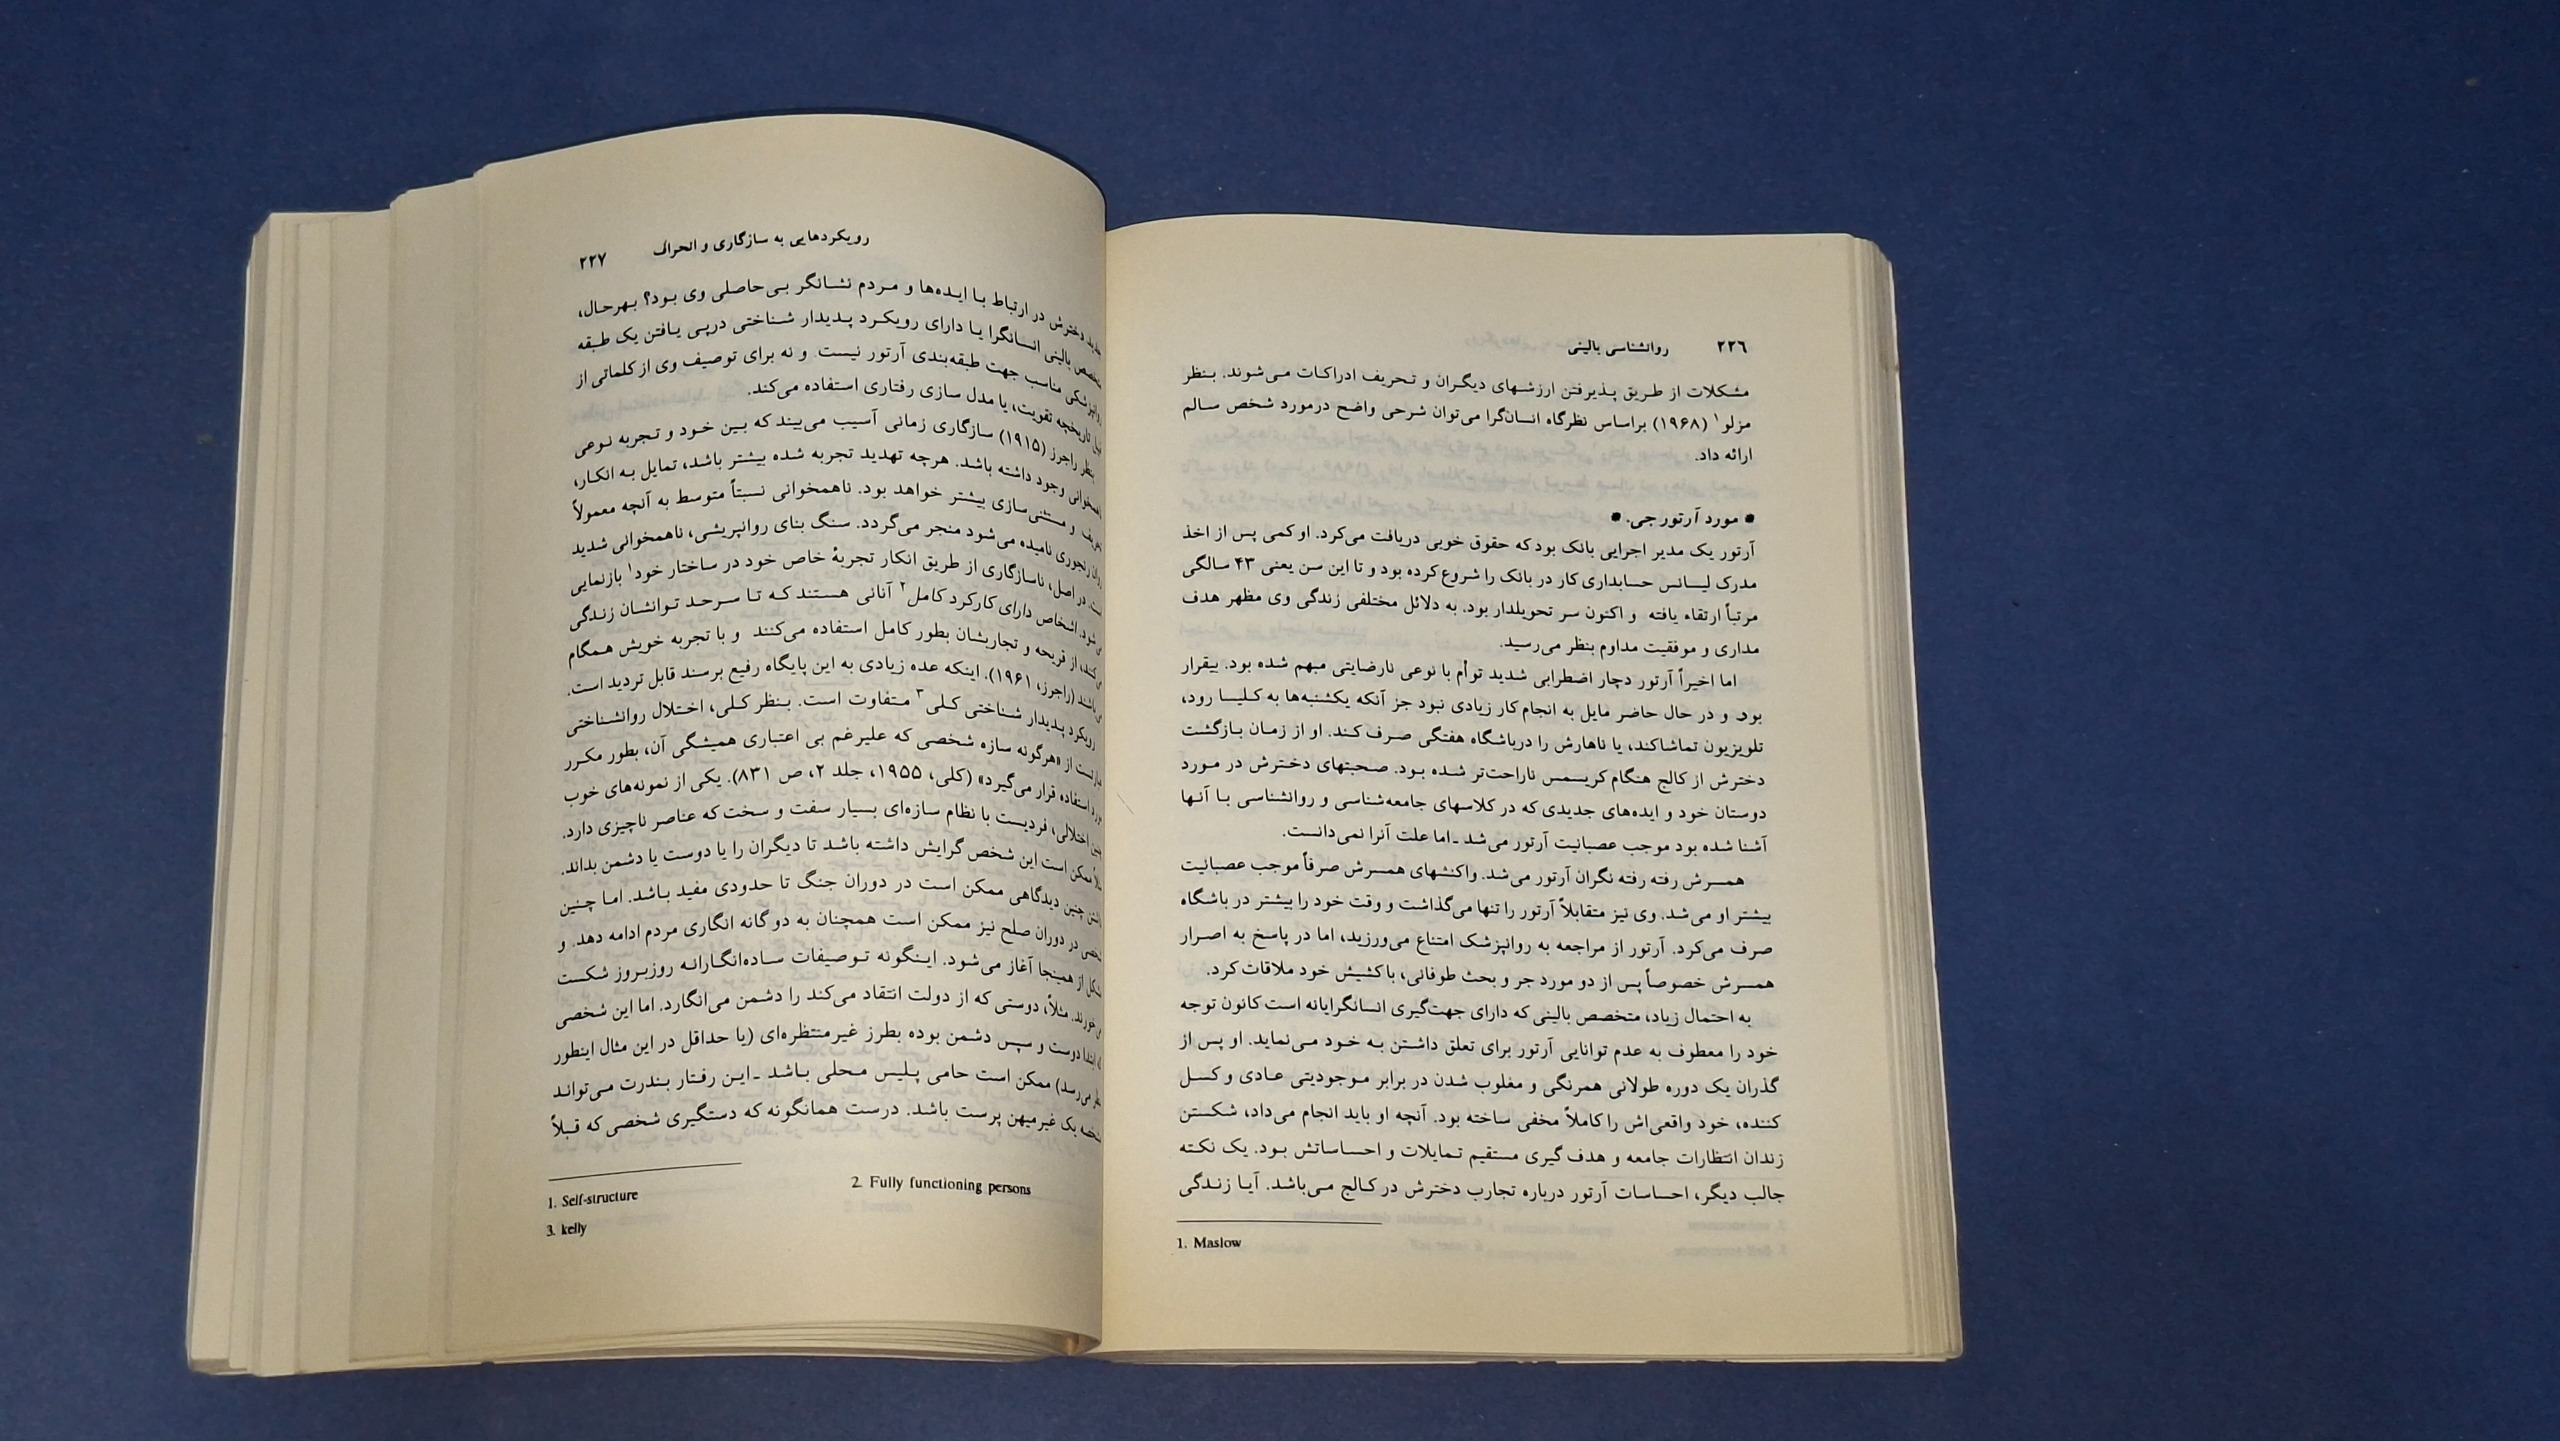 ۲۲۶ روانشناسی بالینی
مشکلات از طریق پذیرفتن ارزشهای دیگران و تحریف ادراکات می‌شوند. بنظر
مزلو۱ (۱۹۶۸) براساس نظرگاه انسان‌گرا می‌توان شرحی واضح درمورد شخص سالم
ارائه داد.
● مورد آرتور جی. ●
آرتور یک مدیر اجرایی بانک بود که حقوق خوبی دریافت می‌کرد. او کمی پس از اخذ
مدرک لیسانس حسابداری کار در بانک را شروع کرده بود و تا این سن یعنی ۴۳ سالگی
مرتباً ارتقاء یافته و اکنون سر تحویلدار بود. به دلائل مختلفی زندگی وی مظهر هدف
مداری و موفقیت مداوم بنظر می‌رسید.
اما اخیراً آرتور دچار اضطرابی شدید توأم با نوعی نارضایتی مبهم شده بود. بیقرار
بود. و در حال حاضر مایل به انجام کار زیادی نبود جز آنکه یکشنبه‌ها به کلیسا رود،
تلویزیون تماشاکند، یا ناهارش را درباشگاه هفتگی صرف کند. او از زمان بازگشت
دخترش از کالج هنگام کریسمس ناراحت‌تر شده بود. صحبتهای دخترش در مورد
دوستان خود و ایده‌های جدیدی که در کلاسهای جامعه‌شناسی و روانشناسی با آنها
آشنا شده بود موجب عصبانیت آرتور می‌شد ـ اما علت آنرا نمی‌دانست.
همسرش رفته رفته نگران آرتور می‌شد. واکنشهای همسرش صرفاً موجب عصبانیت
بیشتر او می‌شد. وی نیز متقابلاً آرتور را تنها می‌گذاشت و وقت خود را بیشتر در باشگاه
صرف می‌کرد. آرتور از مراجعه به روانپزشک امتناع می‌ورزید، اما در پاسخ به اصرار
همسرش خصوصاً پس از دو مورد جر و بحث طوفانی، با کشیش خود ملاقات کرد.
به احتمال زیاد، متخصص بالینی که دارای جهت‌گیری انسانگرایانه است کانون توجه
خود را معطوف به عدم توانایی آرتور برای تعلق داشتن به خود می‌نماید. او پس از
گذران یک دوره طولانی همرنگی و مغلوب شدن در برابر موجودیتی عادی و کسل
کننده، خود واقعی‌اش را کاملاً مخفی ساخته بود. آنچه او باید انجام می‌داد، شکستن
زندان انتظارات جامعه و هدف گیری مستقیم تمایلات و احساساتش بود. یک نکته
جالب دیگر، احساسات آرتور درباره تجارب دخترش در کالج می‌باشد. آیا زندگی
1. Maslow
رویکردهایی به سازگاری و انحراف ۲۲۷
دخترش در ارتباط با ایده‌ها و مردم نشانگر بی‌حاصلی وی بود؟ بهرحال،
بالینی انسانگرا یا دارای رویکرد پدیدار شناختی درپی یافتن یک طبقه
مناسب جهت طبقه‌بندی آرتور نیست و نه برای توصیف وی از کلماتی از
تاریخچه تقویت، یا مدل سازی رفتاری استفاده می‌کند.
بنظر راجرز (۱۹۱۵) سازگاری زمانی آسیب می‌بیند که بین خود و تجربه نوعی
وجود داشته باشد. هرچه تهدید تجربه شده بیشتر باشد، تمایل به انکار،
و مستثنی‌سازی بیشتر خواهد بود. ناهمخوانی نسبتاً متوسط به آنچه معمولاً
رنجوری نامیده می‌شود منجر می‌گردد. سنگ بنای روانپریشی، ناهمخوانی شدید
در اصل، ناسازگاری از طریق انکار تجربهٔ خاص خود در ساختار خود۱ بازنمایی
شود. اشخاص دارای کارکرد کامل۲ آنانی هستند که تا سرحد توانشان زندگی
کنند، از قریحه و تجاربشان بطور کامل استفاده می‌کنند و با تجربه خویش همگام
باشند (راجرز، ۱۹۶۱). اینکه عده زیادی به این پایگاه رفیع برسند قابل تردید است.
رویکرد پدیدار شناختی کلی۳ متفاوت است. بنظر کلی، اختلال روانشناختی
از «هرگونه سازه شخصی که علیرغم بی اعتباری همیشگی آن، بطور مکرر
استفاده قرار می‌گیرد» (کلی، ۱۹۵۵، جلد ۲، ص ۸۳۱). یکی از نمونه‌های خوب
اختلالی، فردیست با نظام سازه‌ای بسیار سفت و سخت که عناصر ناچیزی دارد.
ممکن است این شخص گرایش داشته باشد تا دیگران را یا دوست یا دشمن بداند.
چنین دیدگاهی ممکن است در دوران جنگ تا حدودی مفید باشد. اما چنین
در دوران صلح نیز ممکن است همچنان به دو گانه انگاری مردم ادامه دهد. و
از همینجا آغاز می‌شود. اینگونه توصیفات ساده‌انگارانه روزبروز شکست
خورند. مثلاً، دوستی که از دولت انتقاد می‌کند را دشمن می‌انگارد. اما این شخصی
ابتدا دوست و سپس دشمن بوده بطرز غیرمنتظره‌ای (یا حداقل در این مثال اینطور
می‌رسد) ممکن است حامی پلیس محلی باشد ـ این رفتار بندرت می‌تواند
یک غیرمیهن پرست باشد. درست همانگونه که دستگیری شخصی که قبلاً
1. Self-structure 2. Fully functioning persons
3. kelly